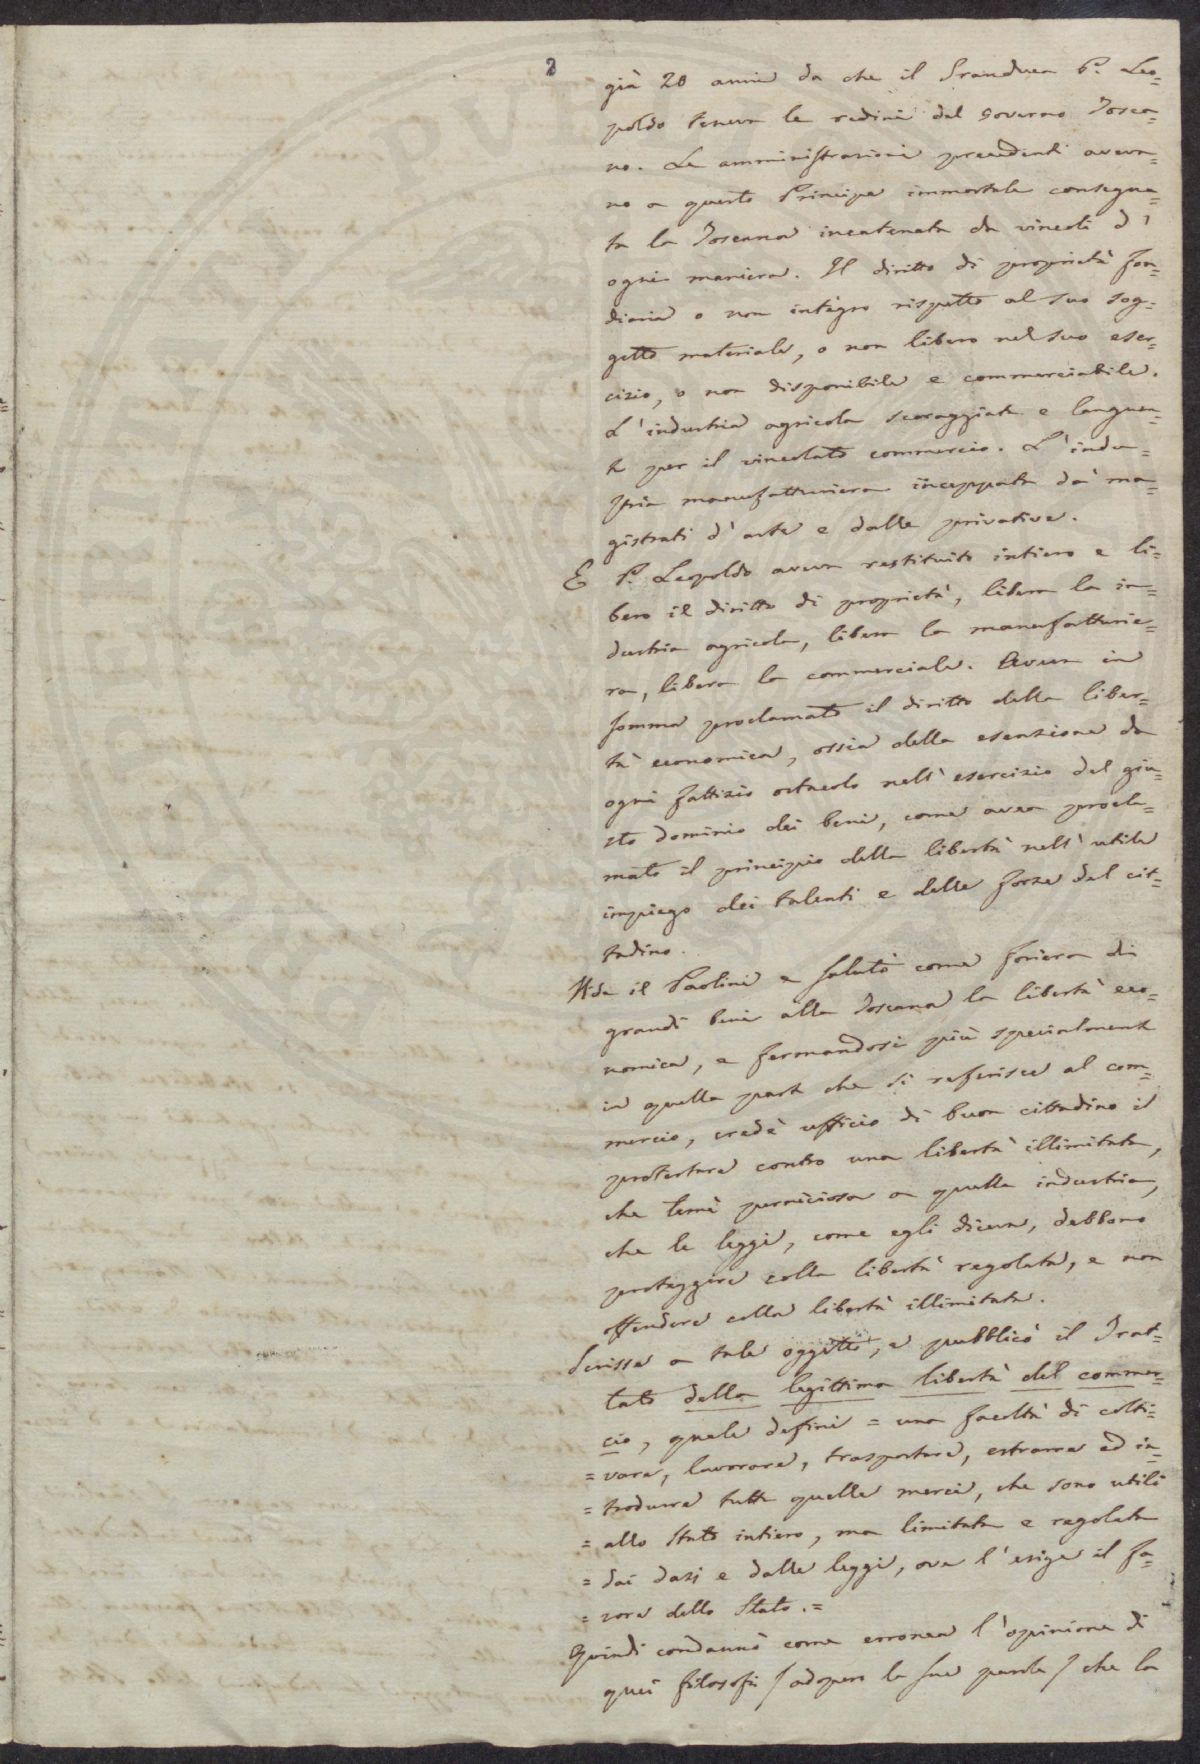 2
già 20 anni da che il Granduca P. Leo=
poldo teneva le redini del Governo Tosca=
no. Le amministrazioni precedenti aveva=
no a questo Principe immortale consegna=
ta la Toscana incatenata da vincoli d'
ogni maniera. Il diritto di proprietà fon=
diaria o non intègro rispetto al suo sog=
getto materiale, o non libero nel suo eser=
cizio, o non disponibile e commerciabile.
L'industria agricola scoraggiata e languen=
te per il vincolato commercio. L'indu=
stria manufatturiera inceppata da' ma=
gistrati d'arte e dalle privative.
E P. Leopoldo aveva restituito intiero e li=
bero il diritto di proprietà, libera la in=
dustria agricola, libera la manufatturie=
ra, libera la commerciale. Aveva in
somma proclamato il diritto della liber=
tà economica, ossia della esenzione da
ogni fattizio ostacolo nell'esercizio del giu=
sto dominio dei beni, come avea procla=
mato il principio della libertà nell'utile
impiego dei talenti e delle forze del cit=
tadino.
Vide il Paolini e salutò come foriera di
grandi beni alla Toscana la libertà eco=
nomica, e fermandosi più specialmente
in quella parte che si referisce al com=
mercio, credè ufficio di buon cittadino il
protestare contro una libertà illimitata,
che temè perniciosa a quella industria,
che le leggi, come egli diceva, debbono
proteggere colla libertà regolata, e non
offendere colla libertà illimitata.
Scrisse a tale oggetto, e pubblicò il Trat=
tato della legittima libertà del commer=
cio, quale definì = una facoltà di colti=
= vare, lavorare, trasportare, estrarre ed in=
= trodurre tutte quelle merci, che sono utili
= allo Stato intiero, ma limitata e regolata
= dai dazi e dalle leggi, ove l'esige il fa=
= vore dello Stato.=
Quindi condannò come erronea l'opinione di
quei filosofi / adopro le sue parole / che la